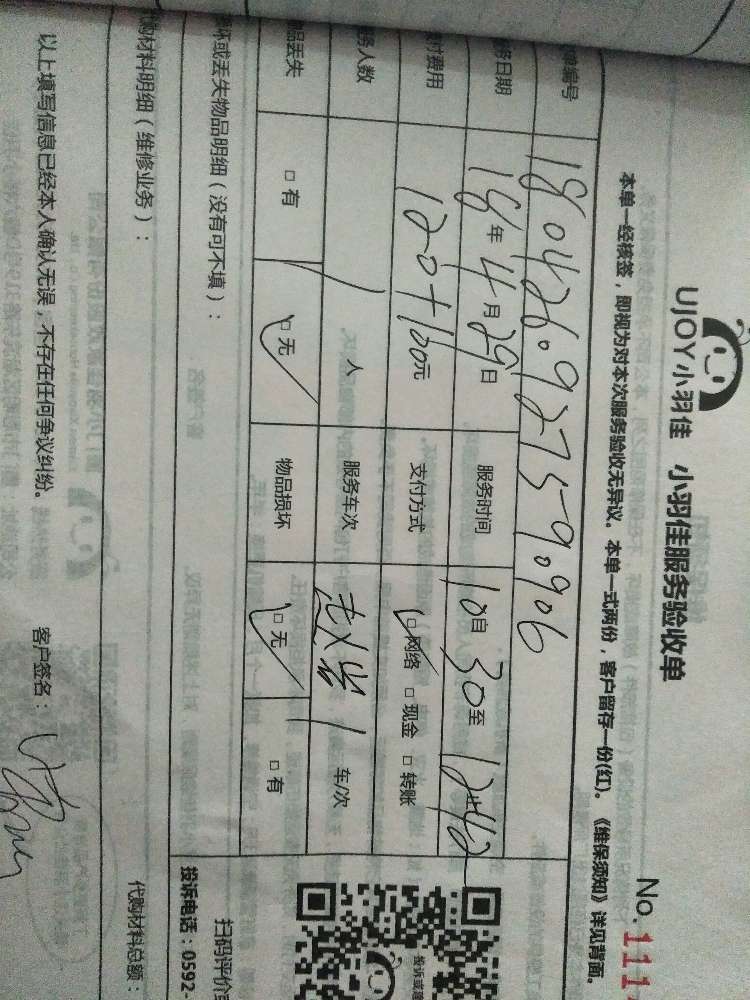 UJOY小羽佳 小羽佳服务验收单
No. 111
本单一经核签，即视为对本次服务验收无异议。本单一式两份，客户留存一份(红)。《维保须知》详见背面。
单编号 1804260927590906
务日期 18年4月29日 服务时间 10 30至1242
付费用 120+100元 支付方式 □网络 □现金 □转账
务人数 人 服务车次 1 车/次
品丢失 □有 □无 物品损坏 □无 □有
坏或丢失物品明细（没有可不填）：
扫码评价
投诉电话：0592-
代购材料明细（维修业务）：
代购材料总额：
以上填写信息已经本人确认无误，不存在任何争议纠纷。
客户签名：